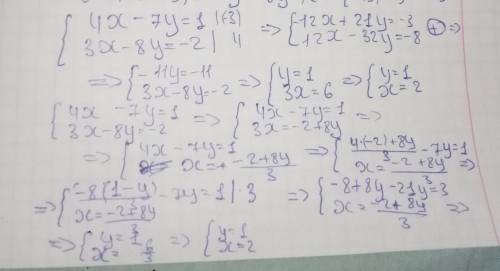 { 4x - 7y = 1 |(-3)
{ 3x - 8y = -2 | 4 => { -12x + 21y = -3
{ 12x - 32y = -8 (+) =>
=> { -11y = -11
{ 3x - 8y = -2 => { y = 1
{ 3x = 6 => { y = 1
{ x = 2
{ 4x - 7y = 1
{ 3x - 8y = -2 => { 4x - 7y = 1
{ 3x = -2 + 8y =>
=> { 4x - 7y = 1
{ x = (-2 + 8y)/3 => { (4·(-2) + 8y)/3 - 7y = 1
{ x = (-2 + 8y)/3
=> { (-8(1 - y))/3 - 7y = 1 | · 3
{ x = (-2 + 8y)/3 => { -8 + 8y - 21y = 3
{ x = (-2 + 8y)/3 =>
=> { y = 1
{ x = 6/3 => { y = 1
{ x = 2